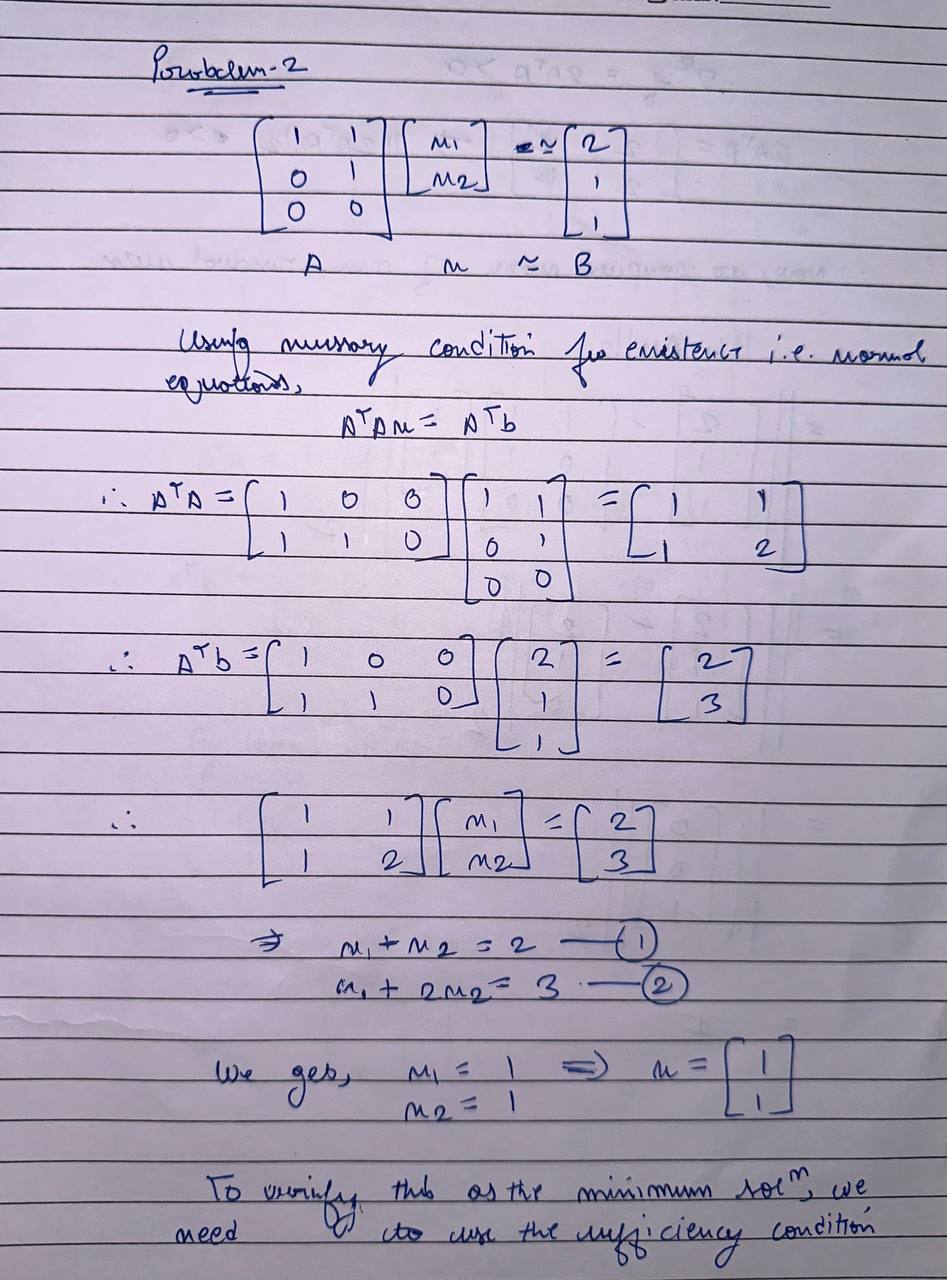 Problem-2
[1 1; 0 1; 0 0] [x1; x2] ≃ [2; 1; 1]
A x ≃ B
Using necessary condition for existence i.e. normal
equations,
AᵀAx = Aᵀb
∴ AᵀA = [1 0 0; 1 1 0] [1 1; 0 1; 0 0] = [1 1; 1 2]
∴ Aᵀb = [1 0 0; 1 1 0] [2; 1; 1] = [2; 3]
∴ [1 1; 1 2] [x1; x2] = [2; 3]
⇒ x1 + x2 = 2 — ①
x1 + 2x2 = 3 — ②
We get, x1 = 1 ⇒ x = [1; 1]
x2 = 1
To verify this as the minimum solⁿ, we
need to use the sufficiency condition